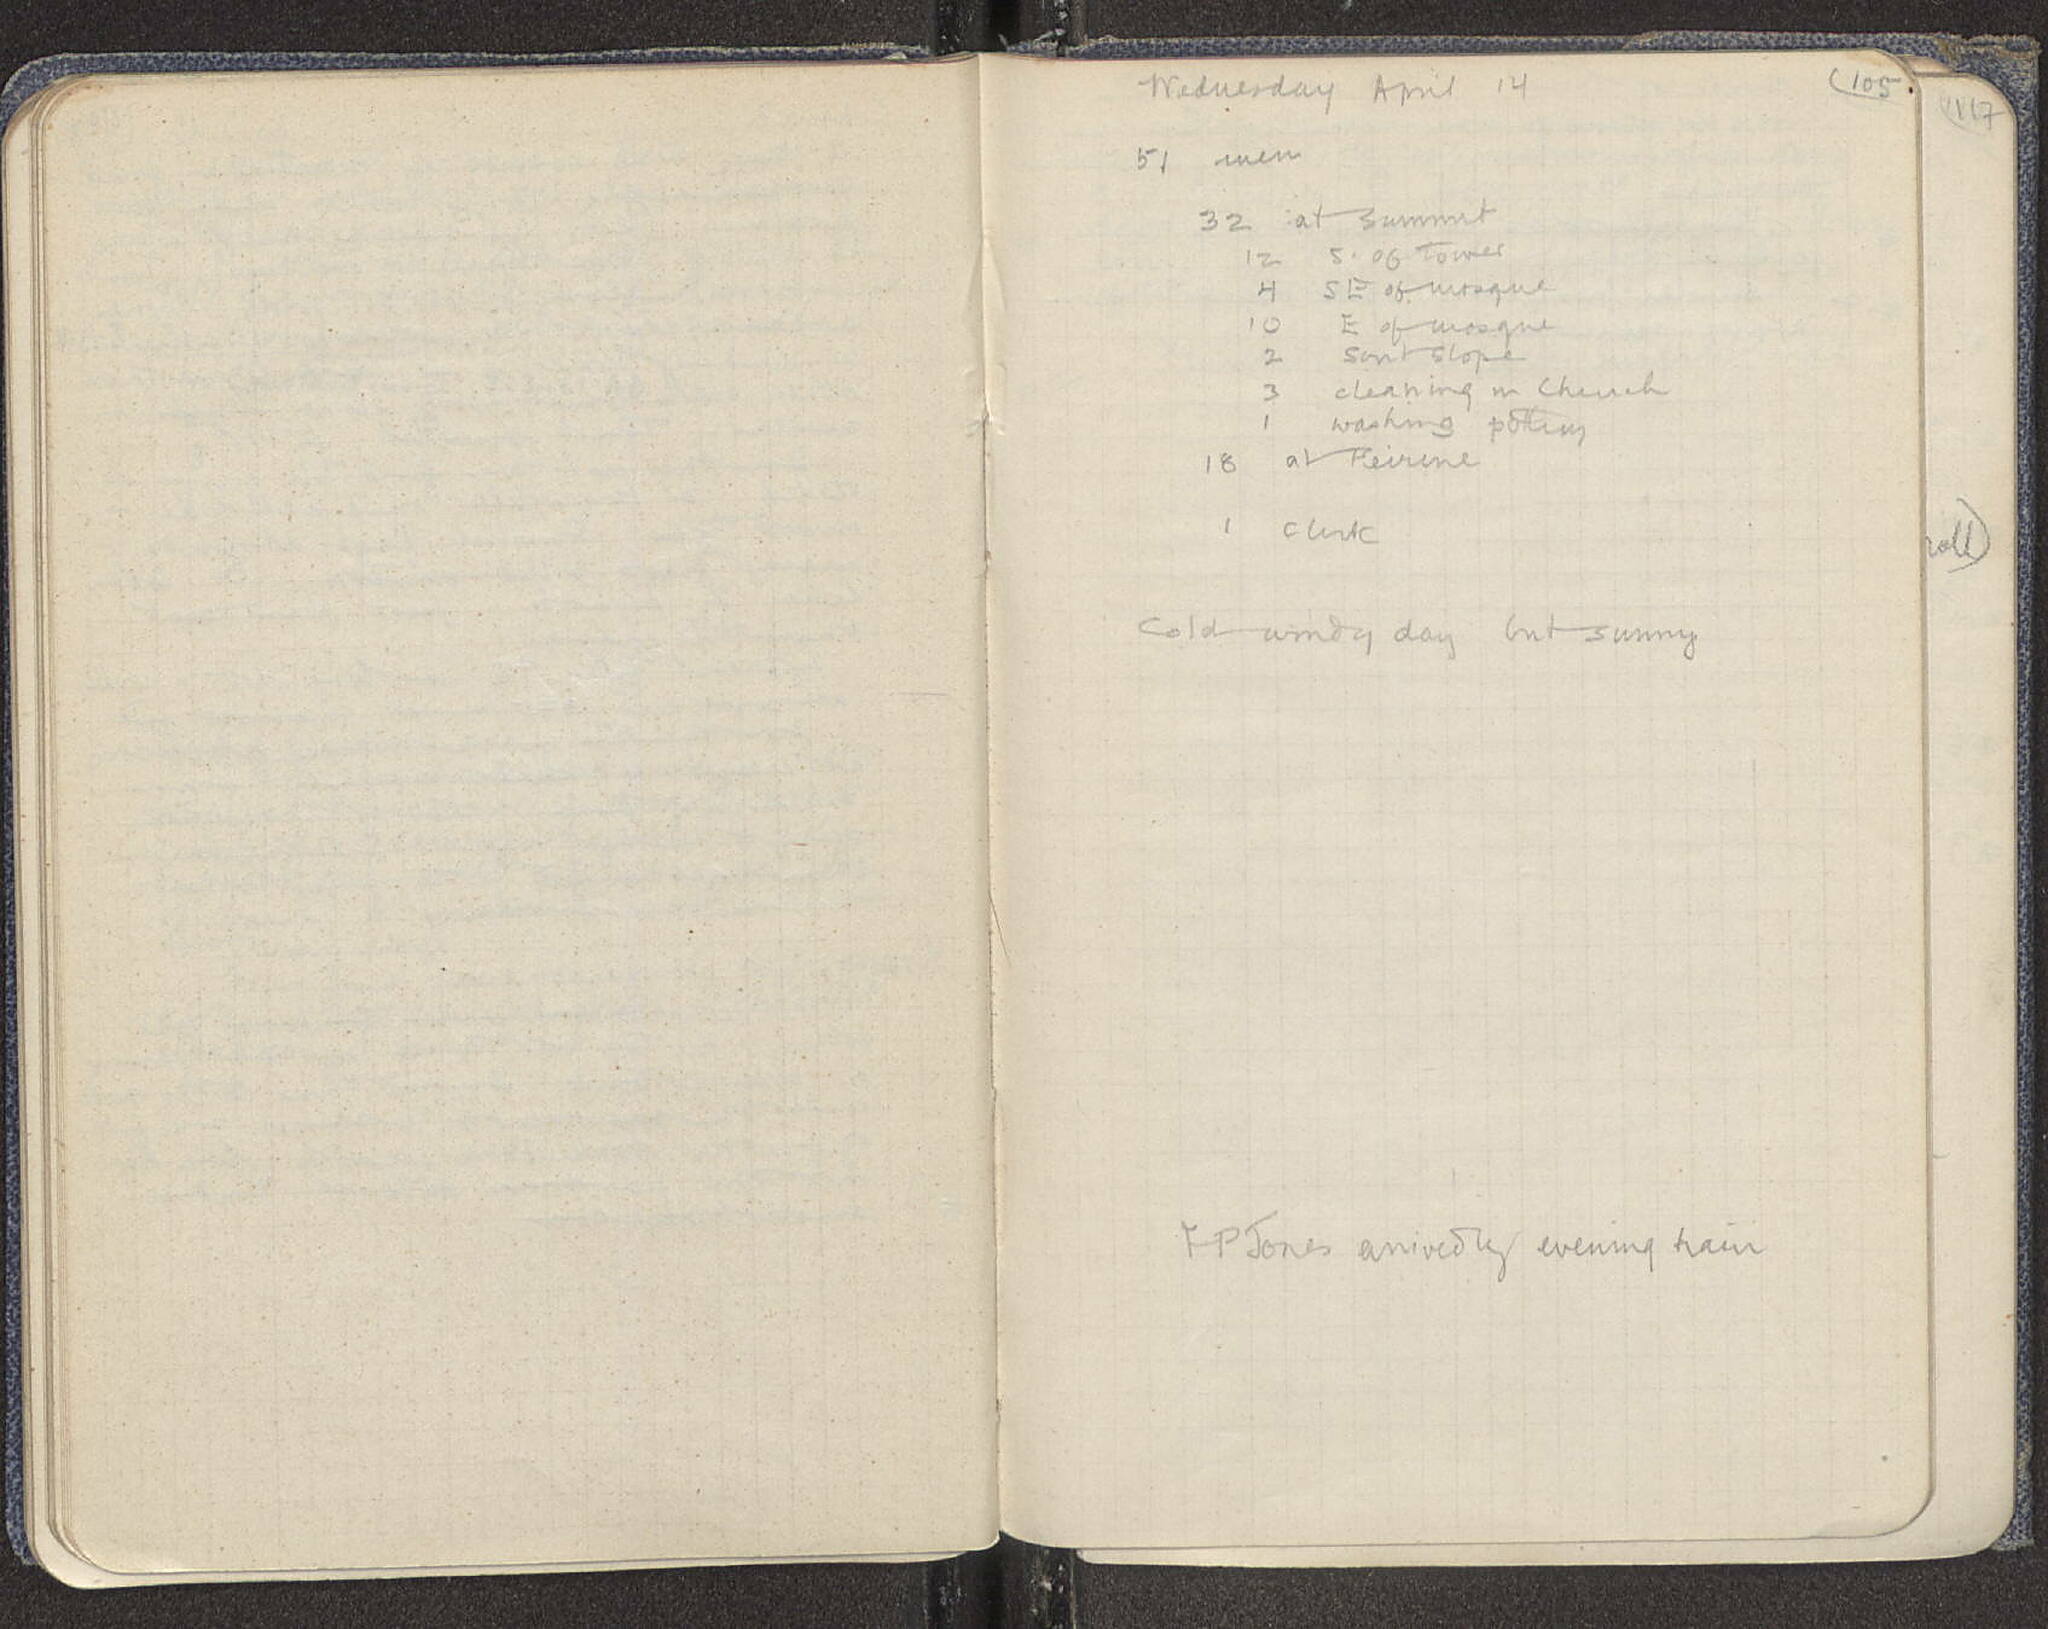 Wednesday April 14 (105
117
51 men
32 at Summit
12 S. of Tower
4 SE of mosque
10 E of mosque
2 Sont Slope
3 cleaning in Church
1 washing pottery
18 at Peirene
1 clerk
roll)
Cold windy day but sunny
F P Jones arrived by evening train